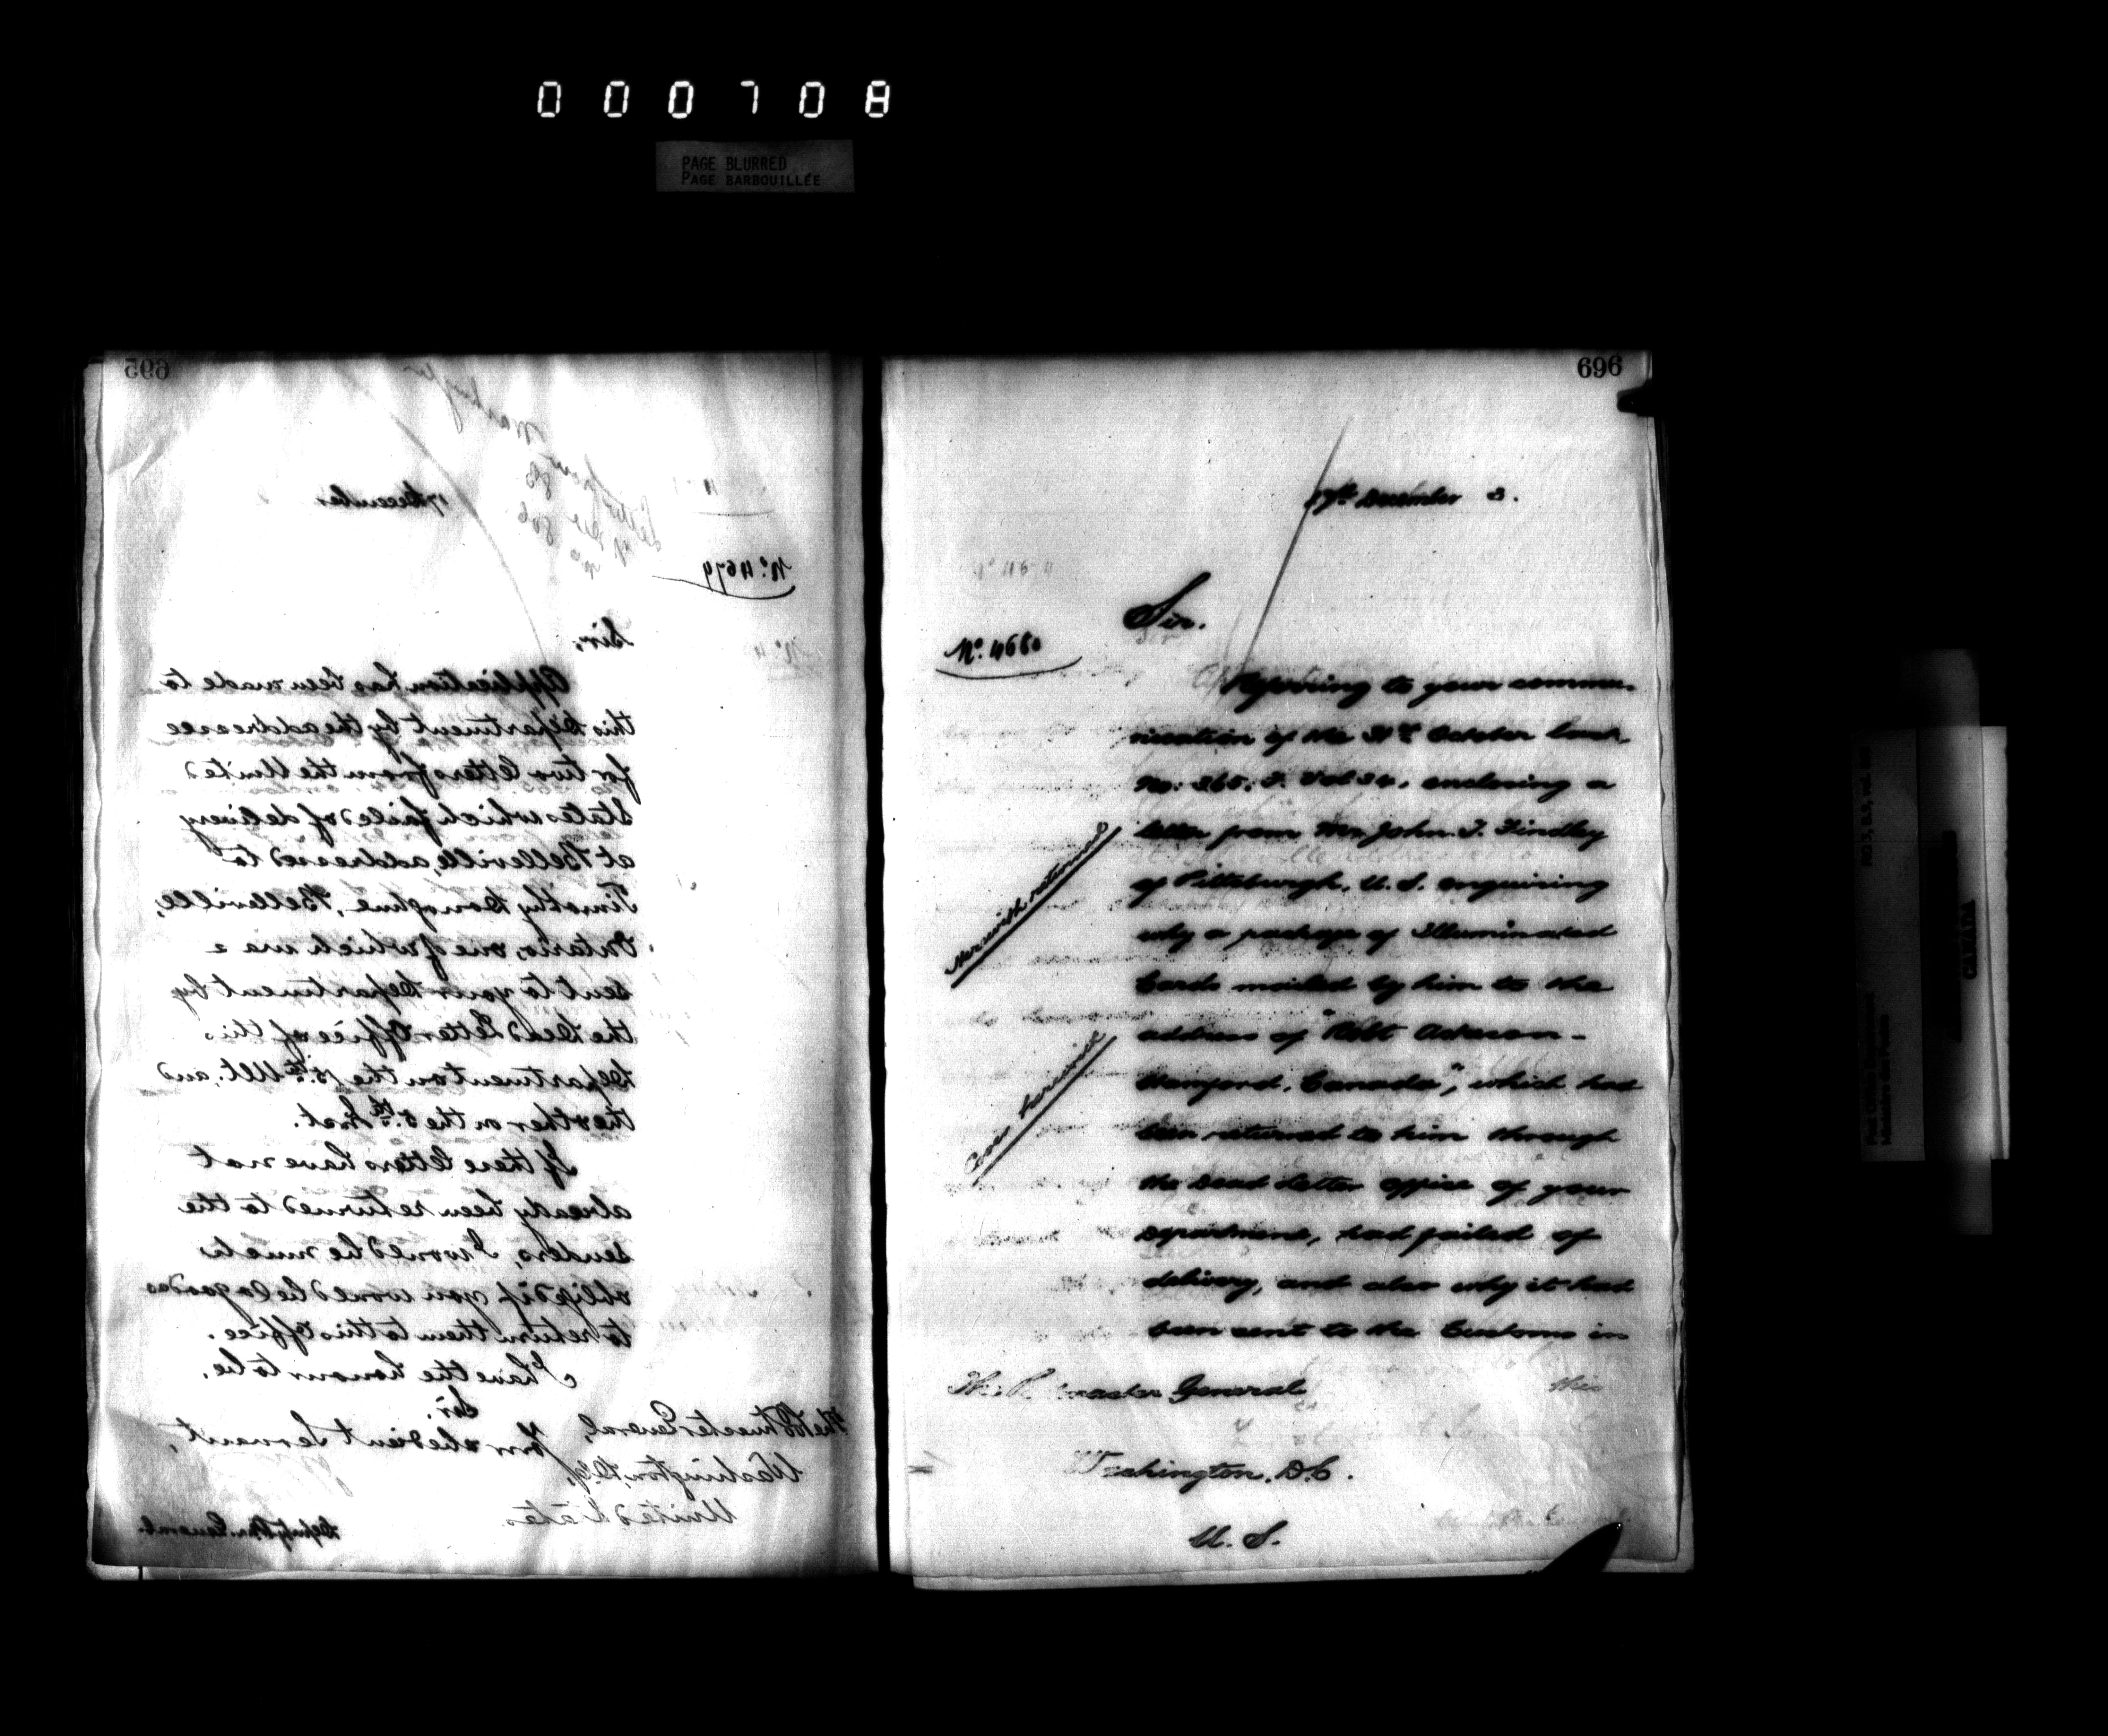 000708
PAGE BLURRED
PAGE BARBOUILLÉE
695
17 December
No. 4679
Sir,
Application has been made to
this Department by the addressee
for two letters from the United
States which failed of delivery
at Belleville, addressed to
Timothy Donoghue, Belleville,
Ontario, one of which was
sent to your Department by
the Dead Letter Office of this
Department on the 15th Ult. and
the other on the 5th Inst.
If these letters have not
already been returned to the
senders, I would be much
obliged if you would be so good as
to return them to this Office.
I have the honour to be,
Sir,
Your obedient Servant,
The Postmaster General,
Washington, D.C.,
United States.
Deputy P.M. General.
696
17th December 3.
Sir.
No. 4680
Referring to your commu-
nication of the 31st October last,
No. 365. F. Vol 34, enclosing a
letter from Mr. John T. Findley
of Pittsburgh, U.S. enquiring
why a package of Illuminated
Cards mailed by him to the
address of "Robt
Canada", which had
been returned to him through
the Dead Letter Office of your
Department, had failed of
delivery, and also why it had
been sent to the Customs in
this
Herewith returned
Cover herewith
The Postmaster General
Washington, D.C.
U. S.
CANADA